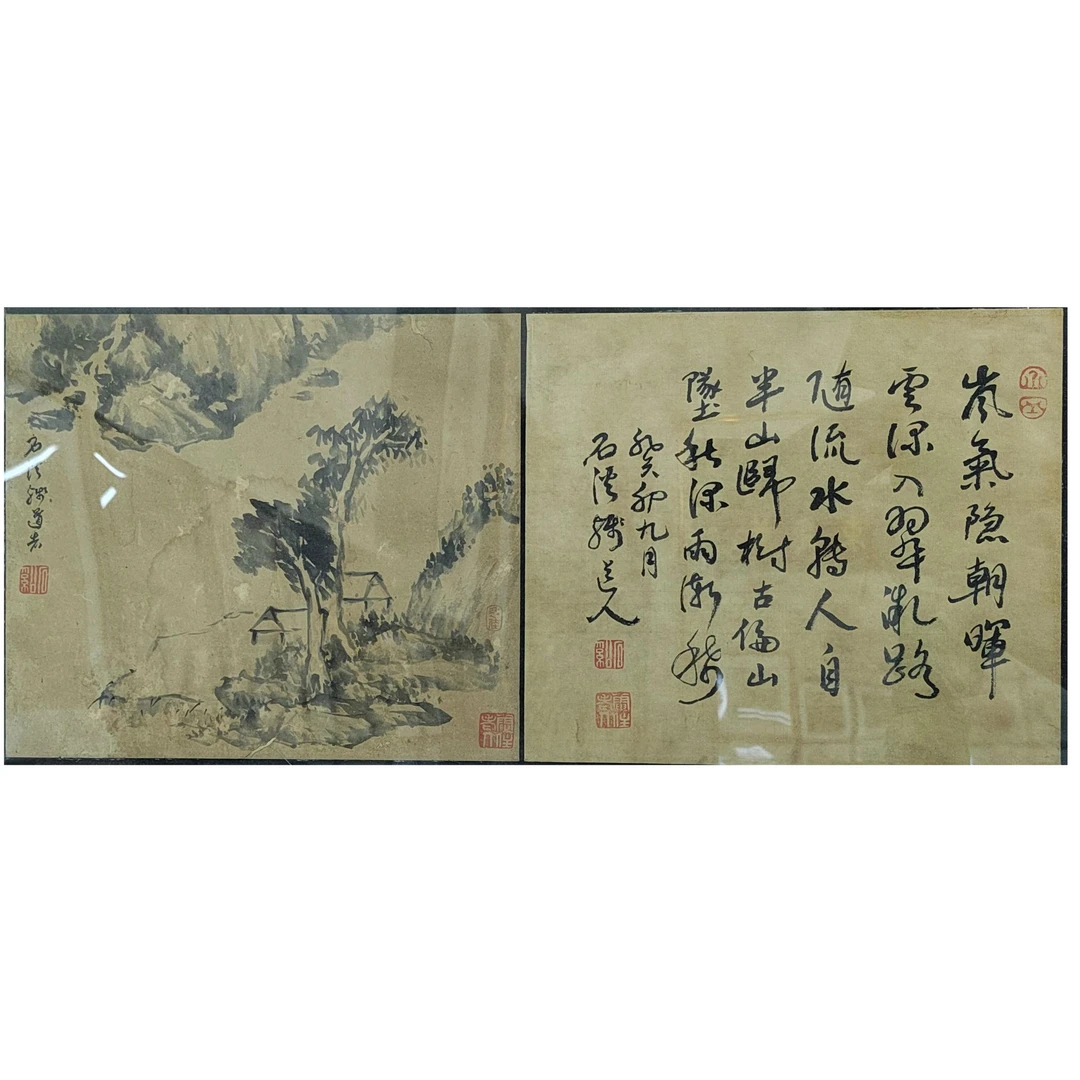 嵐氣隐朝暉
雲深入翠微路
随流水轉人自
半山歸樹古偏山
墜秋深雨漸稀
癸卯九月
石溪殘道人
石溪殘道者